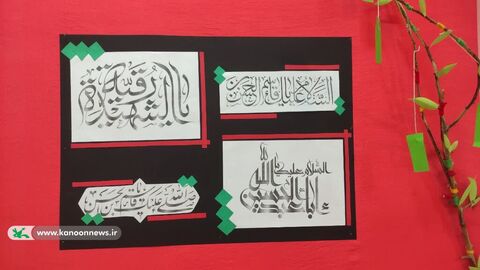 السلام علیک یا قاسم بن الحسن
یا رقیة الشهیدة
السلام علیک
یا اباعبدالله الحسین
صلی الله علیک یا قاسم بن الحسن
www.kanoonnews.ir